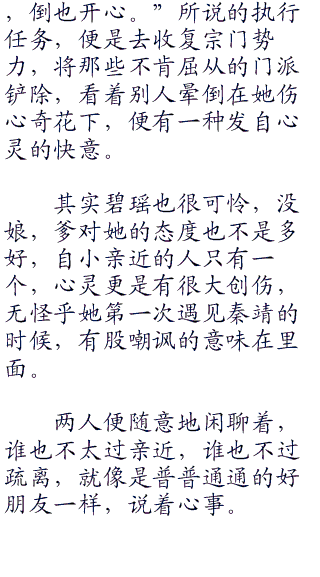 ，倒也开心。”所说的执行
任务，便是去收复宗门势
力，将那些不肯屈从的门派
铲除，看着别人晕倒在她伤
心奇花下，便有一种发自心
灵的快意。
其实碧瑶也很可怜，没
娘，爹对她的态度也不是多
好，自小亲近的人只有一
个，心灵更是有很大创伤，
无怪乎她第一次遇见秦靖的
时候，有股嘲讽的意味在里
面。
两人便随意地闲聊着，
谁也不太过亲近，谁也不过
疏离，就像是普普通通的好
朋友一样，说着心事。